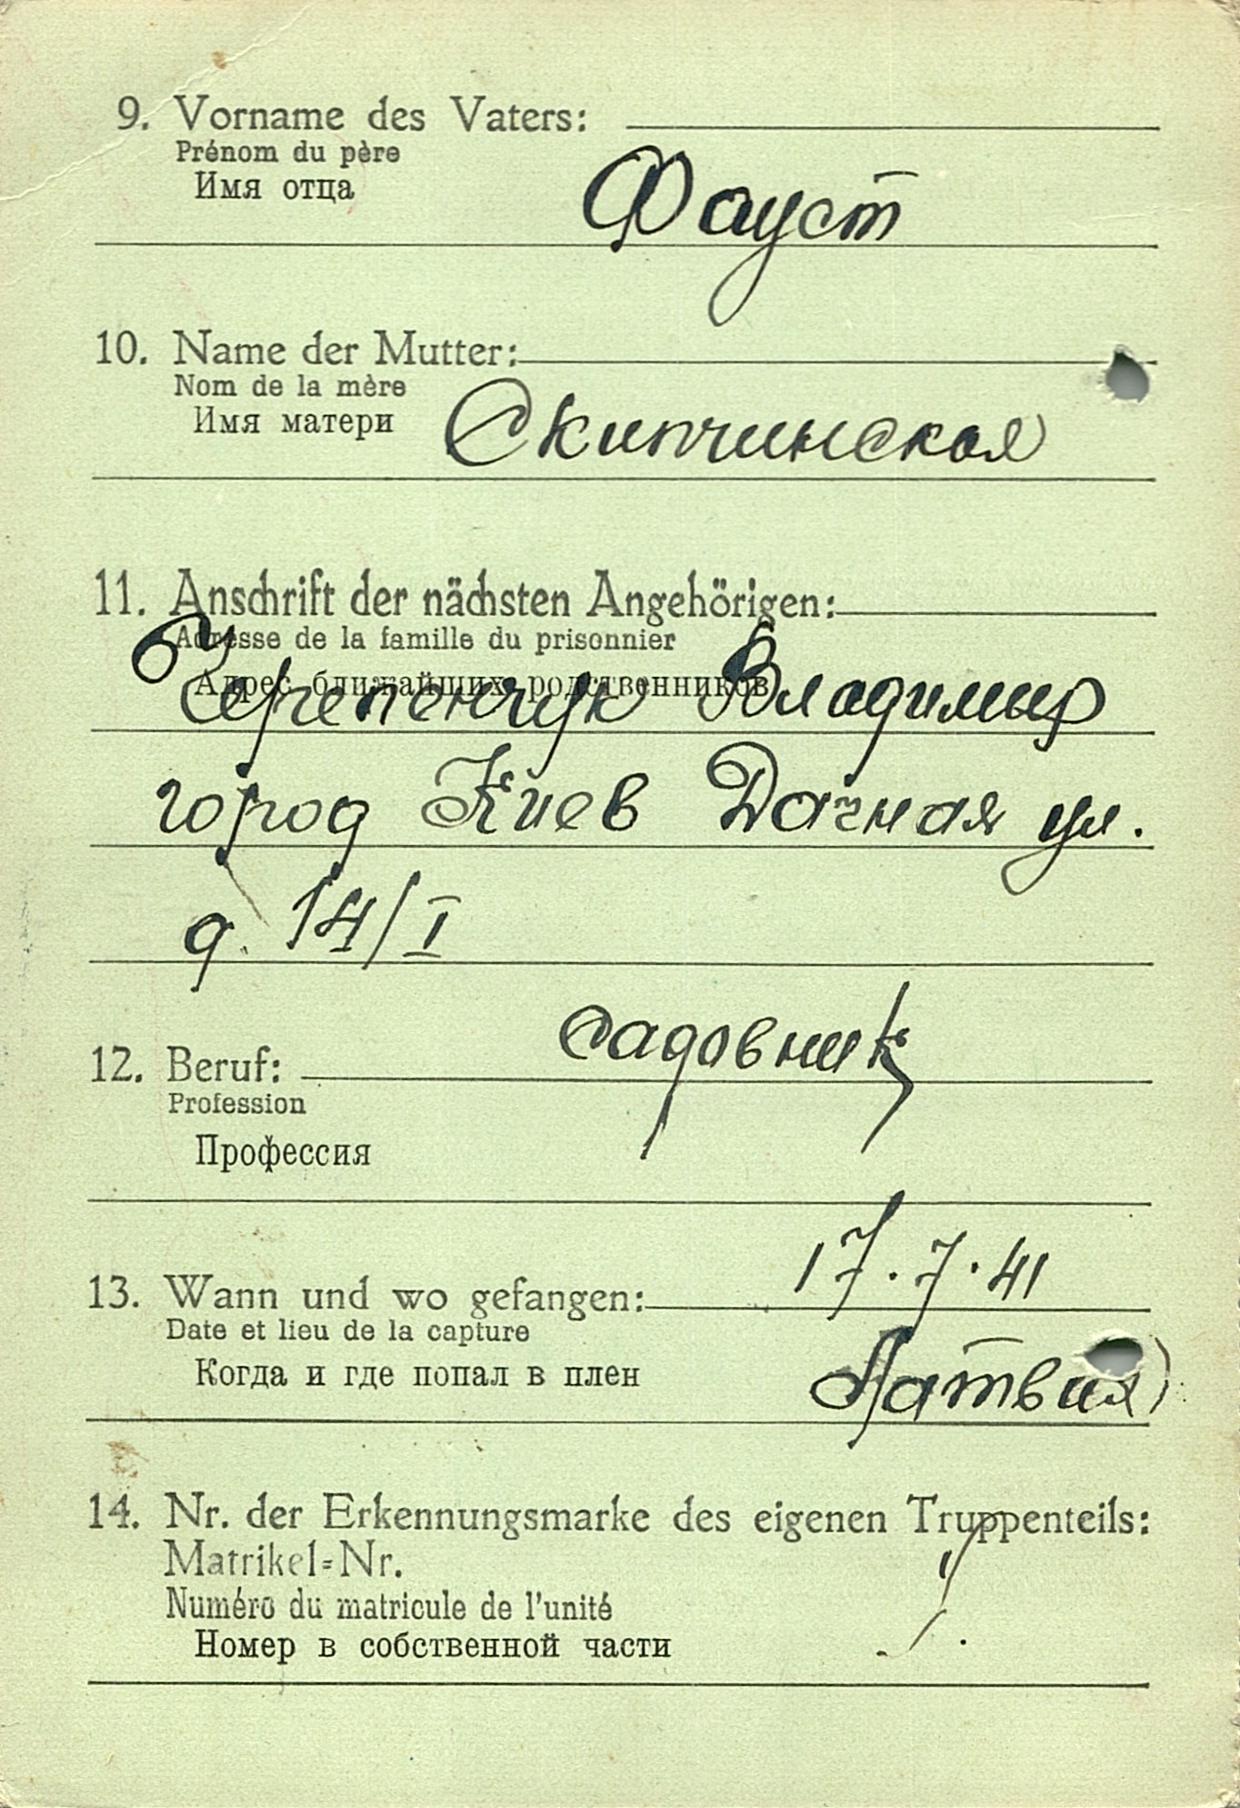 9. Vorname des Vaters:
Prénom du père
Имя отца
Фауст
10. Name der Mutter:
Nom de la mère
Имя матери
Скипчинская
11. Anschrift der nächsten Angehörigen:
Adresse de la famille du prisonnier
Адрес ближайших родственников
Владимир
город Киев Дачная ул.
д. 14/I
садовник
12. Beruf:
Profession
Профессия
17.7.41
13. Wann und wo gefangen:
Date et lieu de la capture
Когда и где попал в плен
Латвия
14. Nr. der Erkennungsmarke des eigenen Truppenteils:
Matrikel=Nr.
Numéro du matricule de l'unité
Номер в собственной части